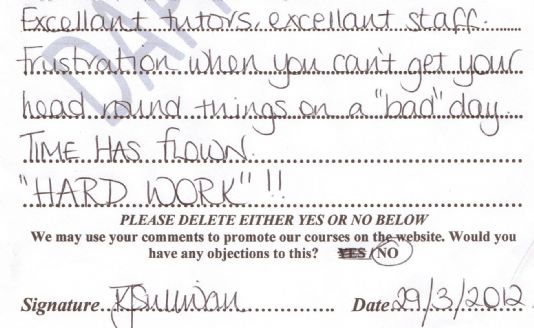 Excellant tutors, excellant staff.
Frustration when you can't get your
head round things on a "bad" day.
TIME HAS FLOWN.
"HARD WORK"!!
PLEASE DELETE EITHER YES OR NO BELOW
We may use your comments to promote our courses on the website. Would you
have any objections to this? YES / NO
Signature KJSullivan Date 29/3/2012